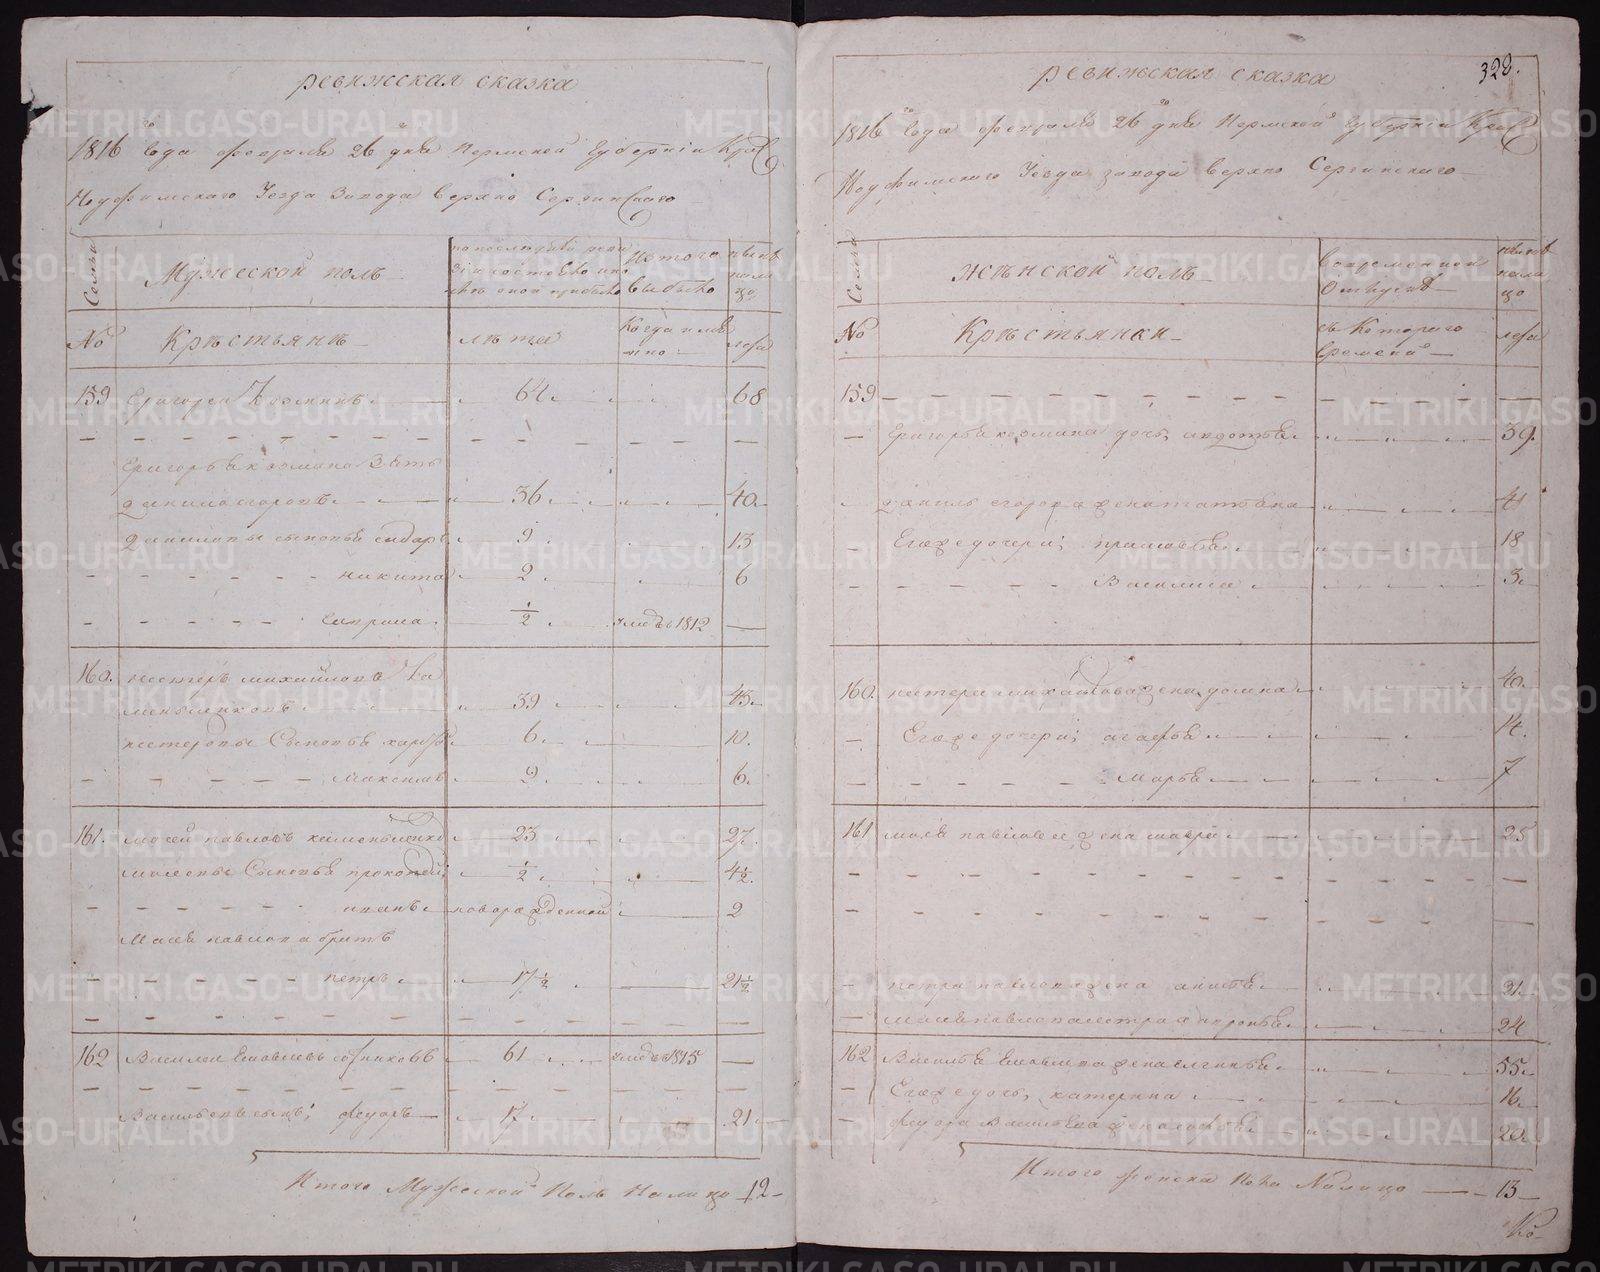 ревижская сказка
1816 го года февраля 26 го дня Пермской Губернии Крас
Ноуфимского Уезда Завода верхно Сергинскаго
Семьи
Мужеской полъ
по последней реви
зии состояло и по
лѣ оной прибыло
Из того
выбыло
ныне
нали
цо
№
Крѣстьянѣ
лѣта
Когда имя
нно
лета
159 Григореи Козминъ 64 68
Григорья козмина Зять
данило егоровъ 36 40
даниловы сыновья сидаръ 9 13
никита 2 6
1/2 умръ 1812
160. нестеръ михайловъ Ка
меньщиковъ 39 43
нестеровы Сыновья 6 10.
максимъ 2 6.
161. мосей павловъ каменьщико 23 27.
мосеевы Сыновья прокопей 1/2 4 1/2.
иванъ новорожденной 2
Мосея павлова братъ
петръ 17 1/2 21 1/2
162 Василеи 61 умръ 1815
Васильевъ сынъ, федоръ 17 21
Итого Мужеской Полъ Налицо 12
328.
ревижская сказка
1816 го года февраля 26 го дня Пермской Губернии Крас
Ноуфимского Уезда завода верхно Сергинскаго
Семьи
жѣнской полъ
во временной
Отлучкѣ
ныне
нали
цо
№
Крѣстьянки
съ Котораго
времени
лета
159
Григорья козмина дочь, авдотья 39.
данилы егорова жена татьяна 41
Егожъ дочери, прасковья 18
Василиса 3
160. нестера михайлова жена домна 40.
Егожъ дочери, агафья 14.
марья 7
161 мосея павлова жена мавра 25
петра павлова жена анисья 21.
мосея павлова сестра 24
162 Василья жена 55
Егожъ дочь, катерина 16
федора Васильева жена 20
Итого женска пола Налицо 13
METRIKI.GASO-URAL.RU